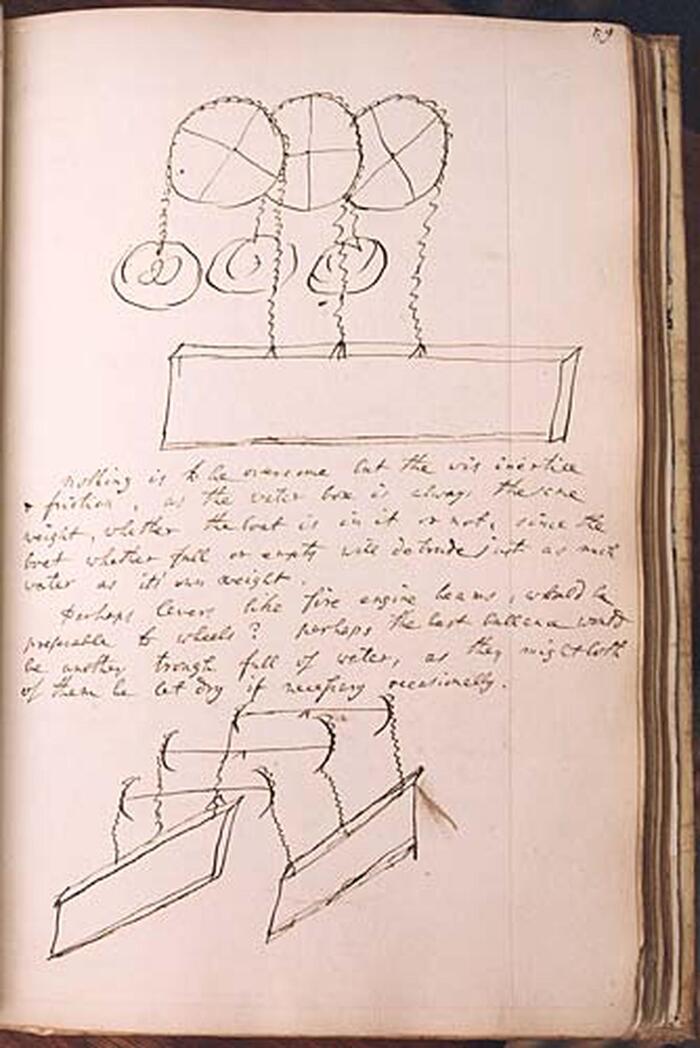 59
nothing is to be overcome but the vis inertiae
& friction, as the water box is always the same
weight, whether the boat is in it or not, since the
boat whether full or empty will detrude just as much
water as it's own weight.
Perhaps levers like fire engine beams, would be
preferable to wheels? perhaps the best ballance would
be another trough full of water, as they might both
of them be let dry if necessary occasionally.